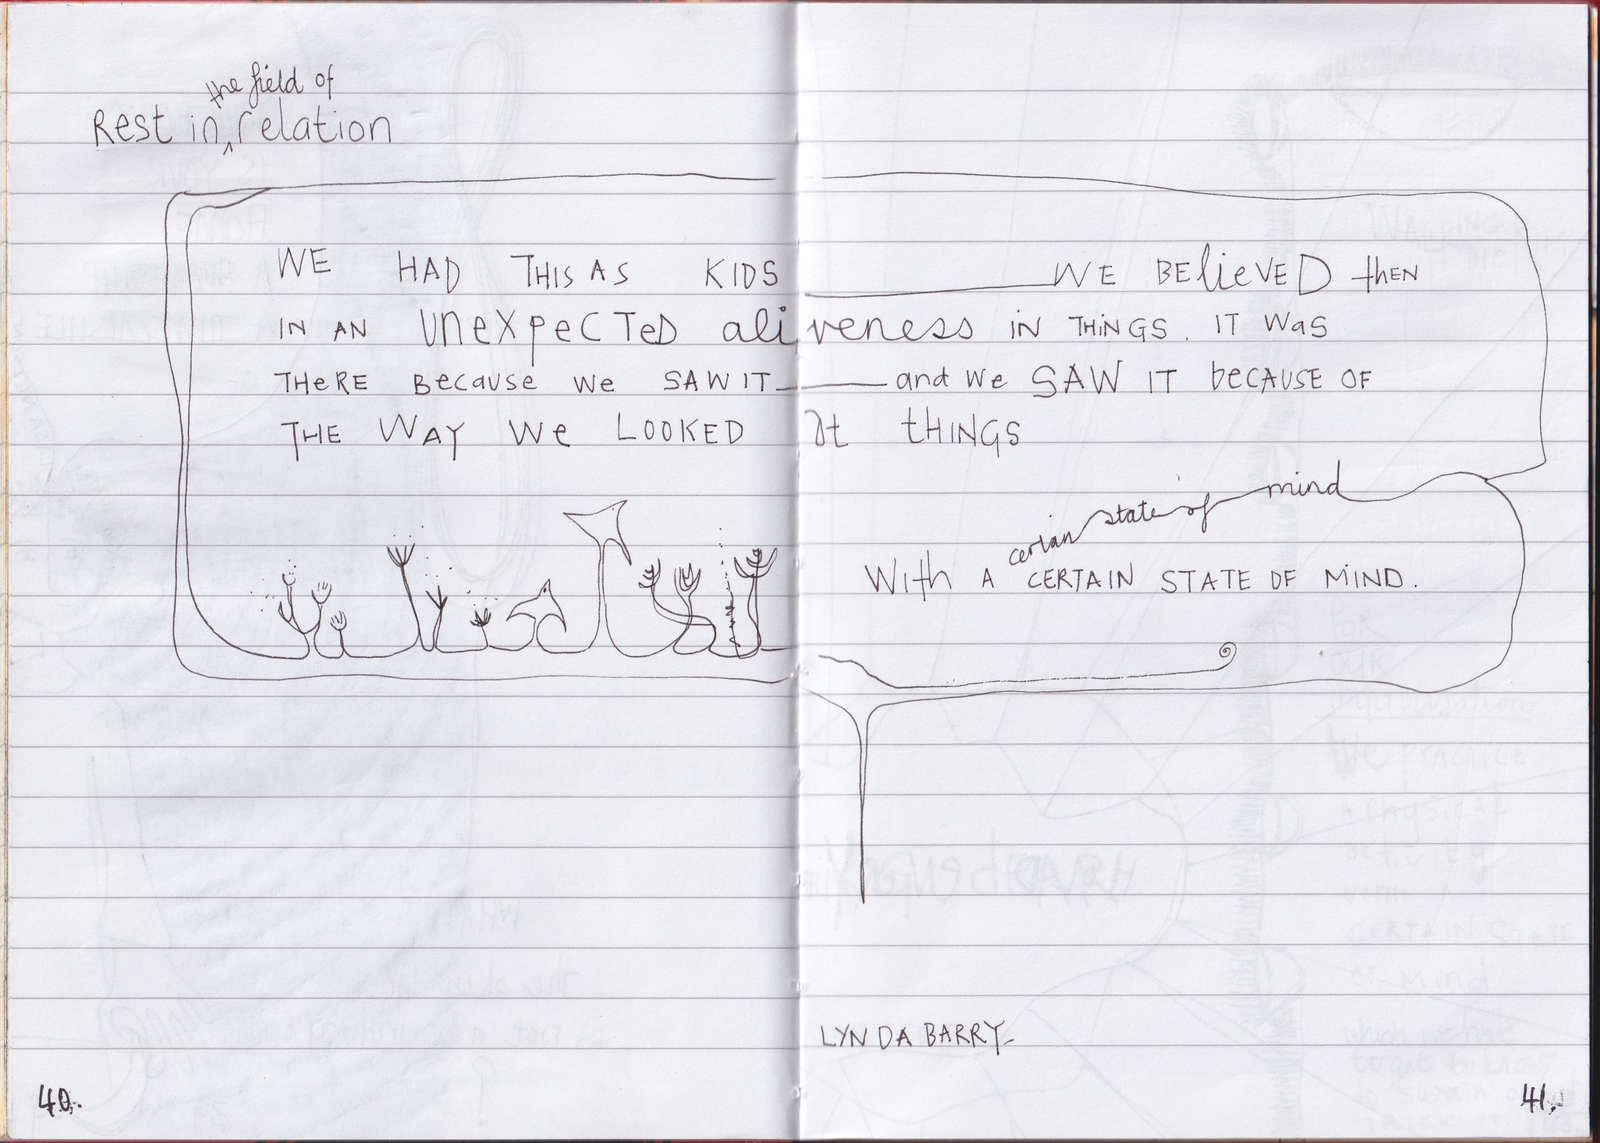 the field of
Rest in ‸ relation
WE HAD THIS AS KIDS ——— WE BELIEVED then
IN AN UNEXPECTED aliveness IN THINGS. IT WAS
THERE BECAUSE WE SAW IT ——— and we SAW IT BECAUSE OF
THE WAY WE LOOKED At tHINGS
certain state of mind
With A CERTAIN STATE OF MIND.
LYNDA BARRY
40.
41.